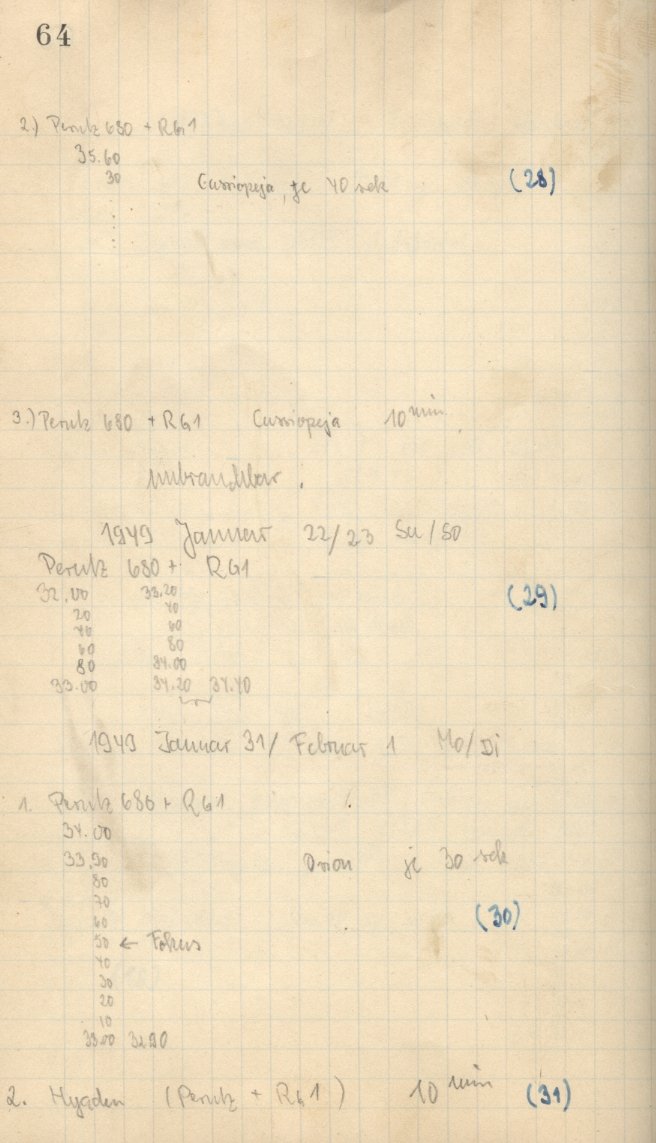 64
2.) Perutz 680 + RG1
35.60
30
Cassiopeja, je 40 sek (28)
3.) Perutz 680 + RG1 Cassiopeja 10 min
unbrauchbar.
1949 Januar 22/23 Sa/So
Perutz 680 + RG1
32.00 33.20 (29)
20 40
40 60
60 80
80 34.00
33.00 34.20 34.40
1949 Januar 31/ Februar 1 Mo/Di
1. Perutz 680 + RG1
34.00
33.90 Orion je 30 sek
80
70
60 (30)
50 ← Fokus
40
30
20
10
33.00 32.90
2. Hyaden (Perutz + RG1) 10 min (31)